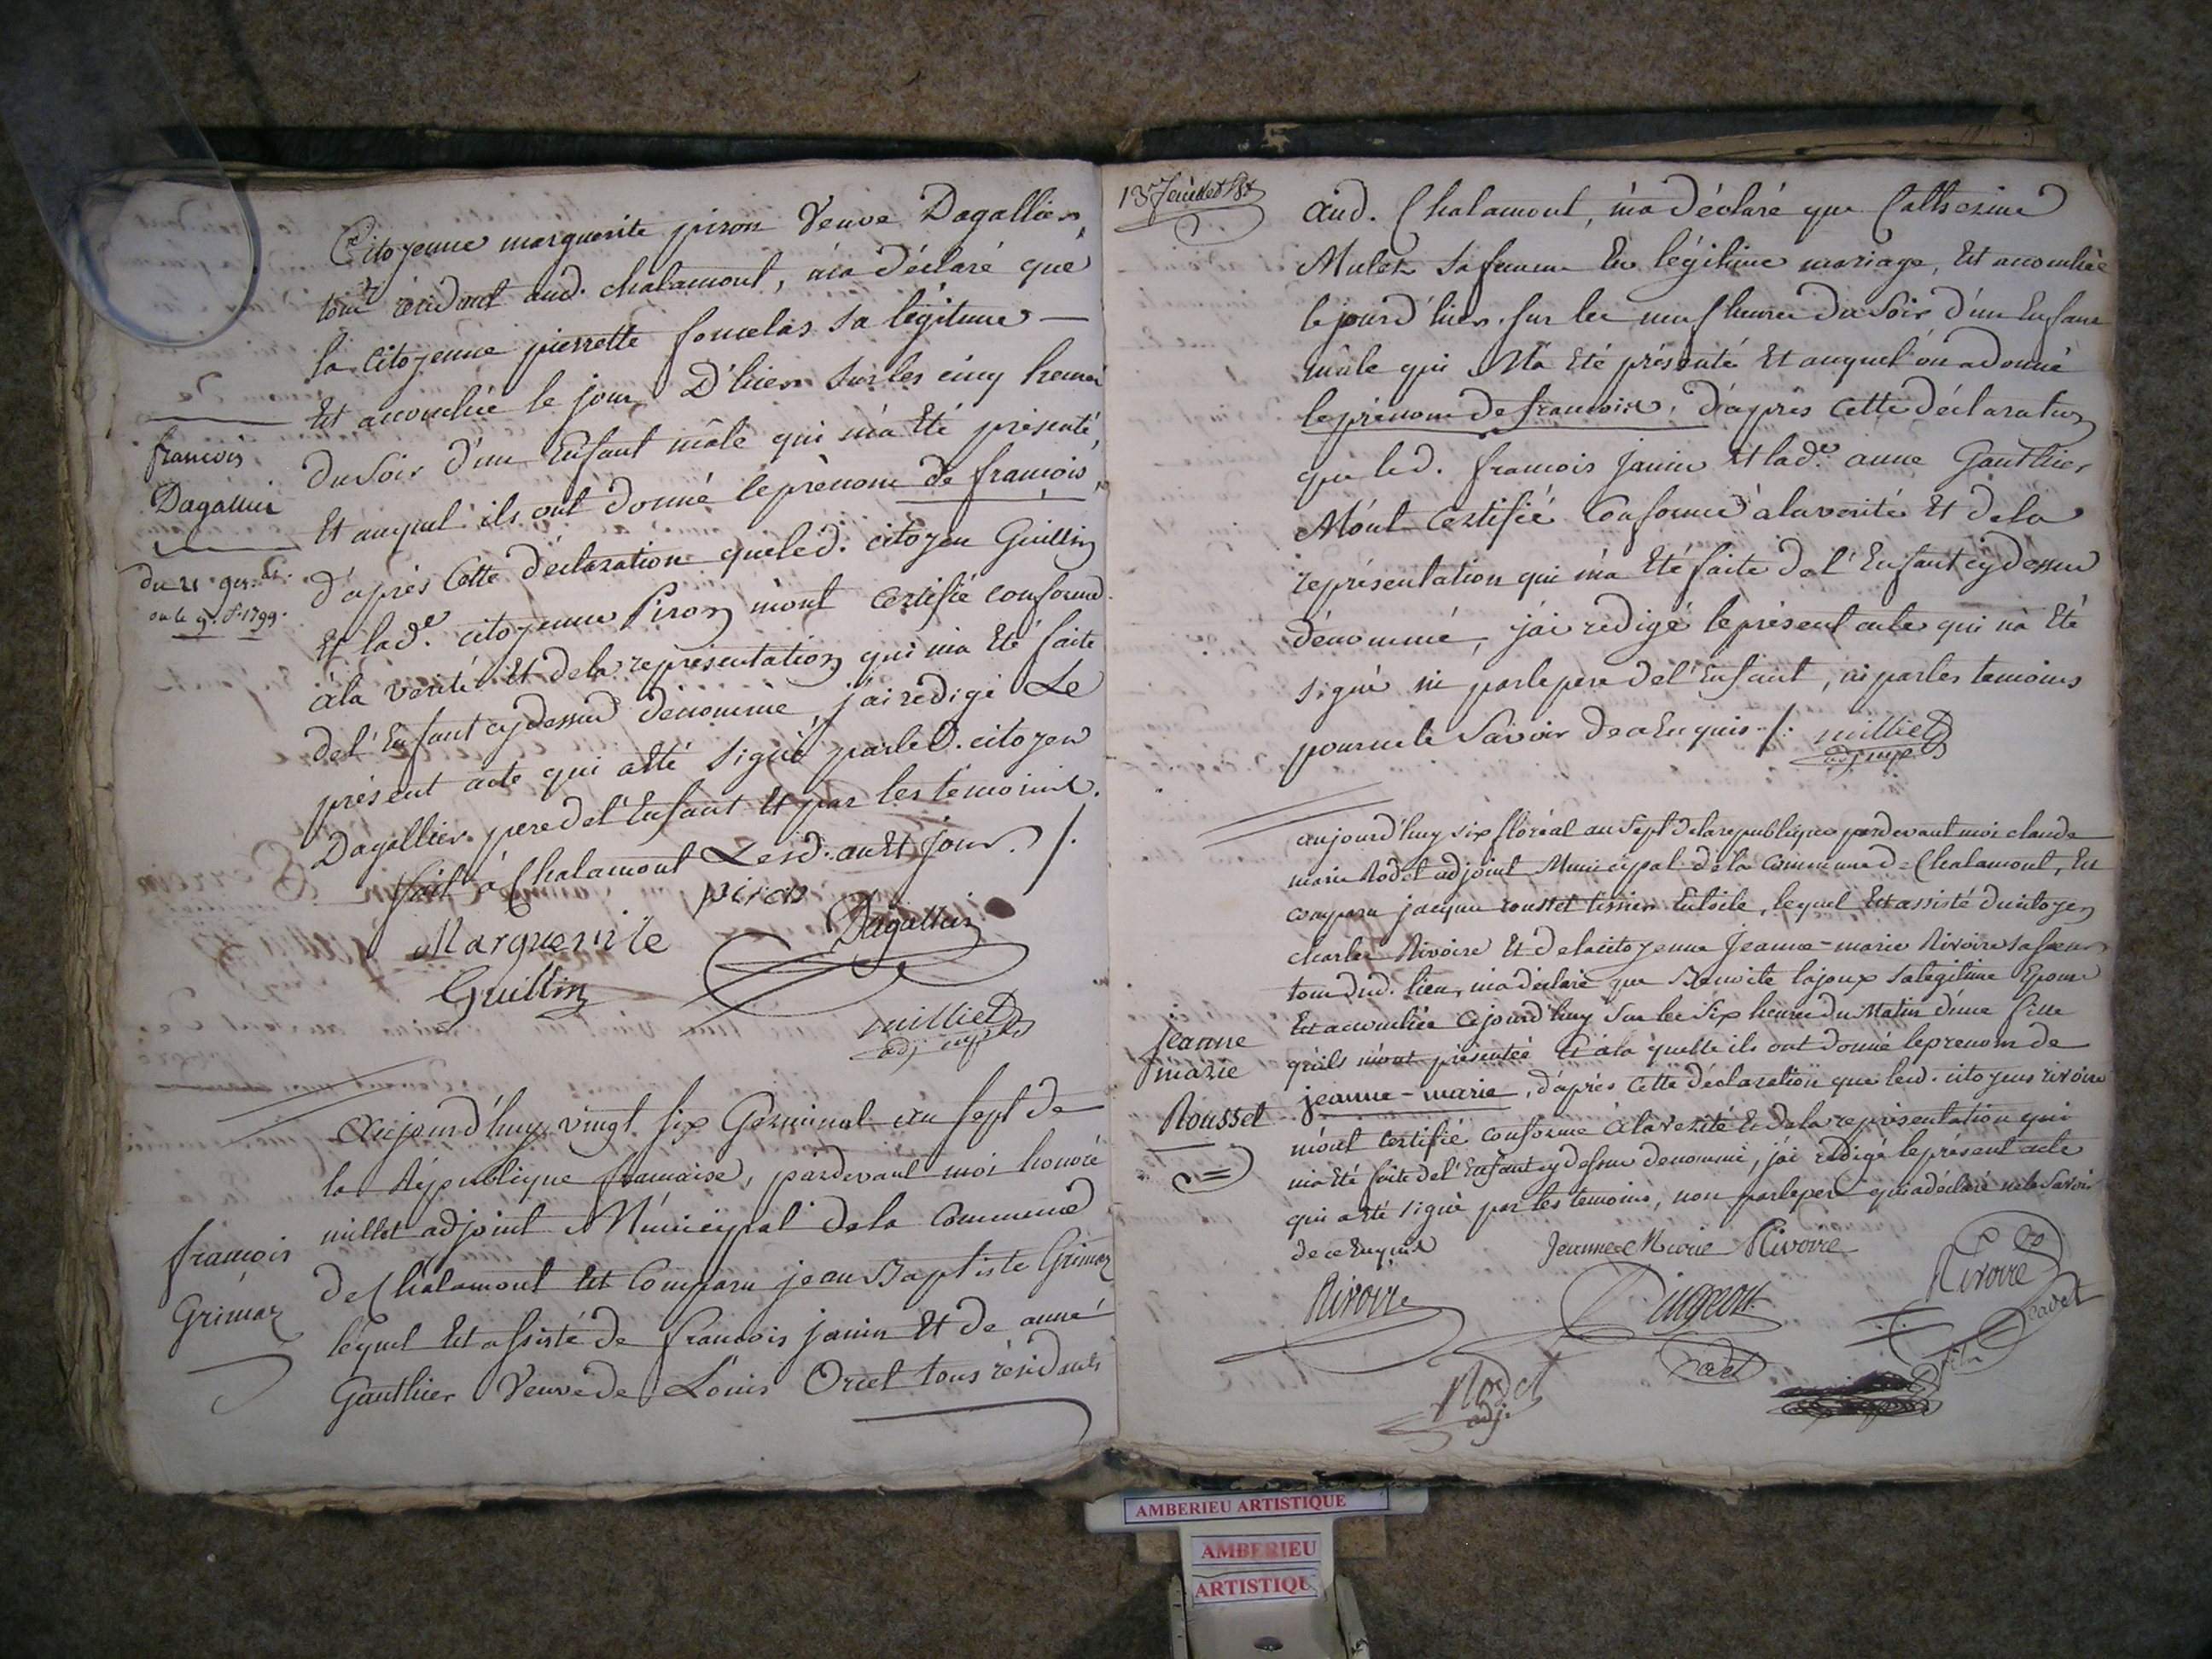 Citoyenne marguerite piron Veuve Dagallier,
tous résidant aud. chalamont, m'a déclaré que
la Citoyenne pierrette fonselas sa légitime —
Est accouchée le jour D'hier sur les cinq heures
du Soir d'un Enfant mâle qui m'a Eté présenté,
Et auquel ils ont donné le prènom de françois,
d'après Cette déclaration que led. citoyen Guillin
Et lad.e citoyenne Piron m'ont certifié conforme
à la vérité Et de la représentation qui m'a Eté faite
de l'Enfant cy dessus dénommé, j'ai redigé Le
présent acte qui a Eté signé par led. citoyen
Dagallier pere de l'Enfant Et par les témoins.
fait à Chalamont Lesd. an Et jour. /.
françois
Dagallier
du 21 ger.al
ou le 1799.
piron
Marguerite
Dagallier
Guillin
milliet
adj
Aujourd'huy vingt six Germinal an sept de
la République française, pardevant moi honoré
millet adjoint Municipal de la Commune
de Chalamont Est Comparu jean Baptiste Grimaz
lequel Est assisté de francois janin Et de anne
Gauthier Veuve de Louis Orcet tous résidants
françois
Grimaz
13e feuillet
aud. Chalamont, m'a déclaré que Catherine
Mulet sa femme En légitime mariage, Est accouchée
le jour d'hier sur les neuf heures du Soir d'un Enfant
mâle qui M'a Eté présenté Et auquel on a donné
le prénom de francois, d'après Cette déclaration
que led. francois Janin Et lad.e anne Gauthier
M'ont Certifié Conforme à la verité Et de la
représentation qui m'a Eté faite de l'Enfant cy dessus
dénommé, j'ai redigé le présent acte qui n'a Eté
signé ni par le pere de l'Enfant, ni par les temoins
pour ne le Savoir de ce Enquis /. milliet
adj
aujourd'huy six floréal an sept de la republique pardevant moi claude
marie Rodet adjoint Municipal de la Commune de Chalamont, Est
comparu jacques rousset tissier En toile, lequel Est assisté du citoyen
charles Rivoire Et de la citoyenne Jeanne-marie Rivoire sa sœur
tous dud. lieu, m'a déclaré que Benoite lajoux sa legitime Epouse
Est accouchée cejourd'huy sur les six heures du Matin d'une fille
qu'ils m'ont présentée Et à la quelle ils ont donné le prenom de
jeanne-marie, d'après Cette déclaration que lesd. citoyens rivoire
m'ont certifié conforme à la verité Et de la représentation qui
m'a Eté faite de l'Enfant cy dessus denommé, j'ai redigé le présent acte
qui a Eté signé par les temoins, non par le pere qui a déclaré ne le savoir
de ce Enquis
Jeanne
marie
Rousset
Jeanne Marie Rivoire
Rivoire
Rivoire
Rodet
adj.
AMBERIEU ARTISTIQUE
AMBERIEU
ARTISTIQU